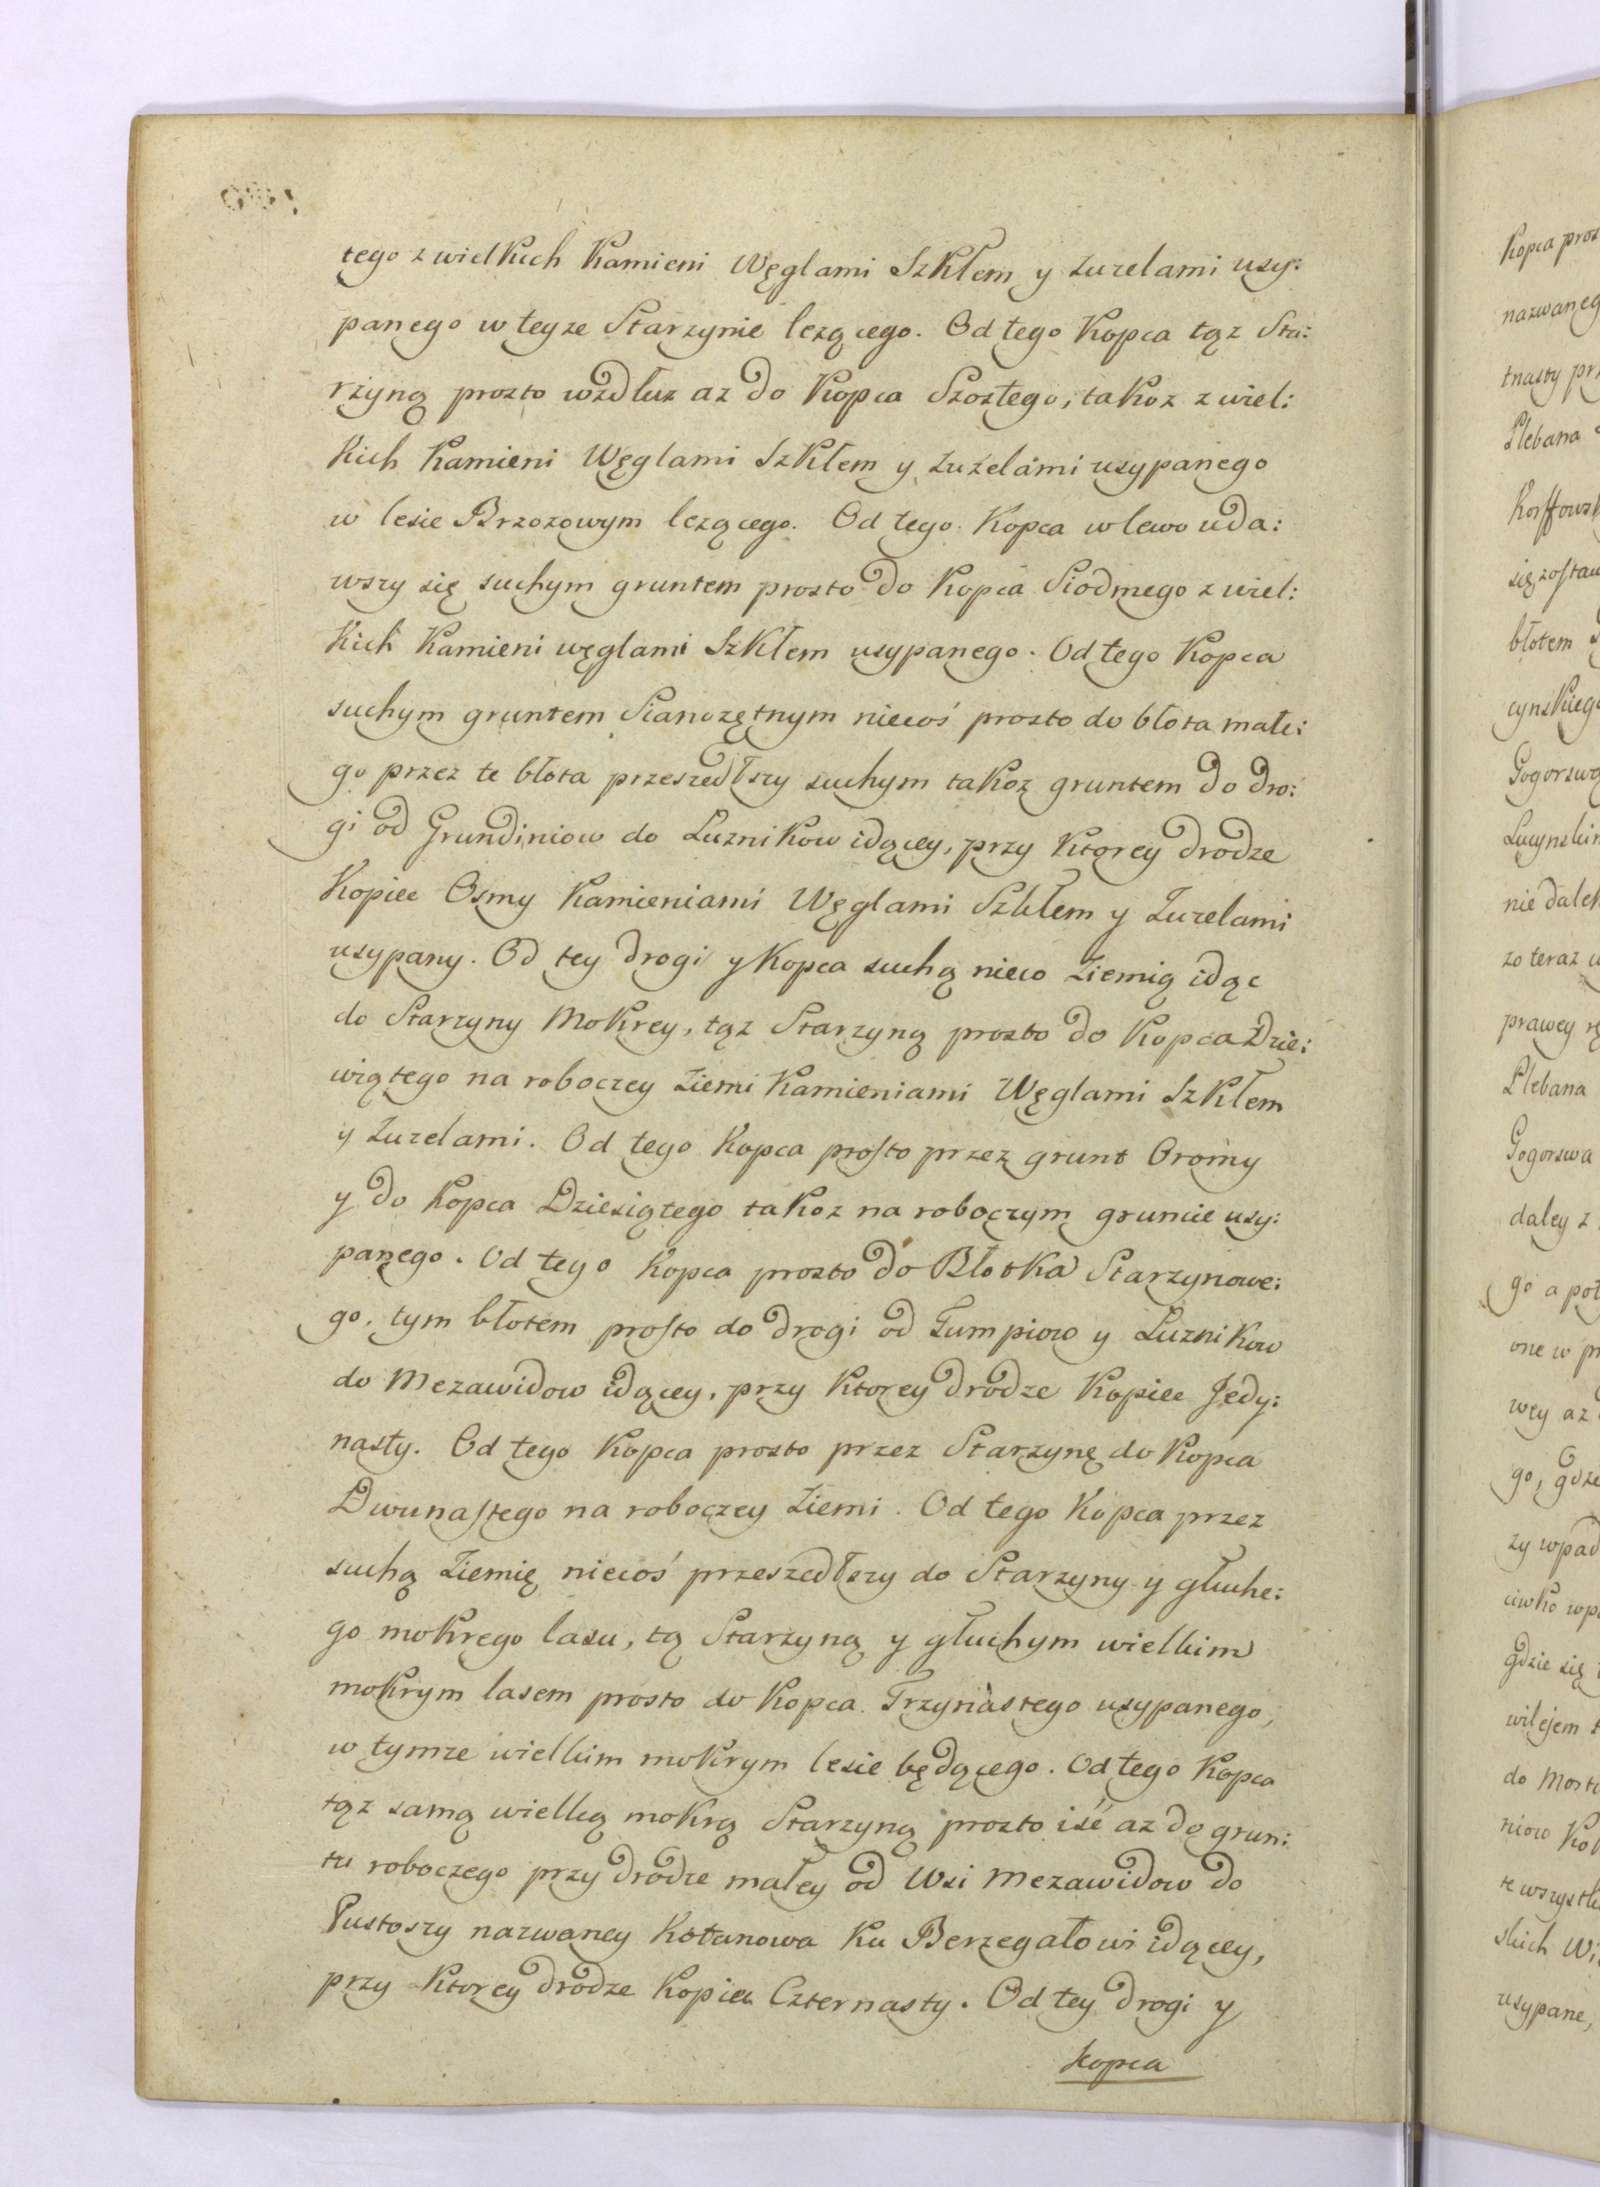 tego z wielkich Kamieni Węglami Szkłem y Zuzelami usy:
panego w teyze Starzynie lezącego. Od tego Kopca tąz Sta:
rzyną prosto wzdłuz az do Kopca Szostego, takoz z wiel:
kich Kamieni Węglami Szkłem y Zuzelami usypanego
w lesie Brzozowym lezącego. Od tego Kopca w lewo uda:
wszy się suchym gruntem prosto do Kopca Siodmego z wiel:
kich Kamieni węglami Szkłem usypanego. Od tego Kopca
suchym gruntem Sianozętnym niecoś prosto do błota małe:
go przez te błota przeszedłszy suchym takoz gruntem do dro:
gi od Grundiniow do Luznikow idącey, przy Ktorey drodze
Kopiec Osmy Kamieniami Węglami Szkłem y Zuzelami
usypany. Od tey drogi y Kopca suchą nieco Ziemią idąc
do Starzyny Mokrey, tąz Starzyną prosto do Kopca Dzie:
wiątego na roboczey Ziemi Kamieniami Węglami Szkłem
y Zuzelami. Od tego Kopca prosto przez grunt Oromy
y do Kopca Dziesiątego takoz na roboczym gruncie usy:
panego. Od tego Kopca prosto do Błotka Starzynowe:
go, tym błotem prosto do drogi od Gumpiow y Luznikow
do Mezawidow idącey, przy Ktorey drodze Kopiec Jedy:
nasty. Od tego Kopca prosto przez Starzynę do Kopca
Dwunastego na roboczey Ziemi. Od tego Kopca przez
suchą Ziemię niecoś przeszedłszy do Starzyny y głuche:
go mokrego lasu, tą Starzyną y głuchym wielkim
mokrym lasem prosto do Kopca Trzynastego usypanego,
w tymze wielkim mokrym lesie będącego. Od tego Kopca
tąz samą wielką mokrą Starzyną prosto iść az do grun:
tu roboczego przy drodze małey od Wsi Mezawidow do
Pustoszy nazwaney Kołanowa Ku Berzegałowi idącey,
przy Ktorey drodze Kopiec Czternasty. Od tey drogi y
kopca
Kopca
nazwaneg
tnasty
Plebana
się zostaw
błotem
cynskiego
nie
zo teraz
prawey
Plebana
Gogorswa
daley z
go a
one w
wey az
go,
zy
gdzie się
wilejem
do
niow
te wszystk
skich
usypane,